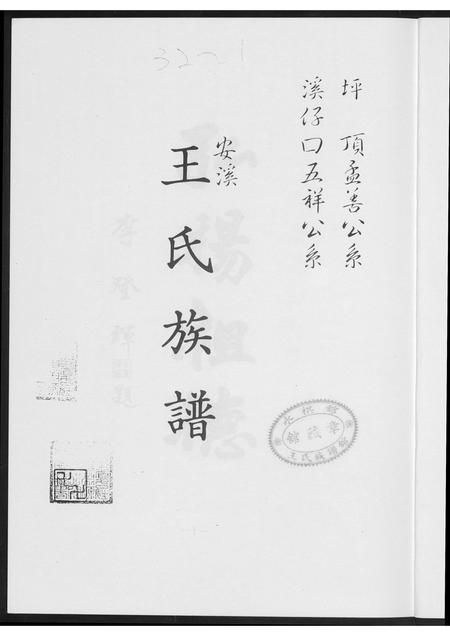 坪頂孟善公系
溪仔口五祥公系
安溪
王氏族譜
322-1
李登輝